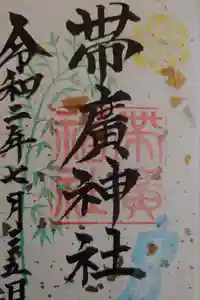 帶廣神社
令和二年七月五日
帶廣
神社